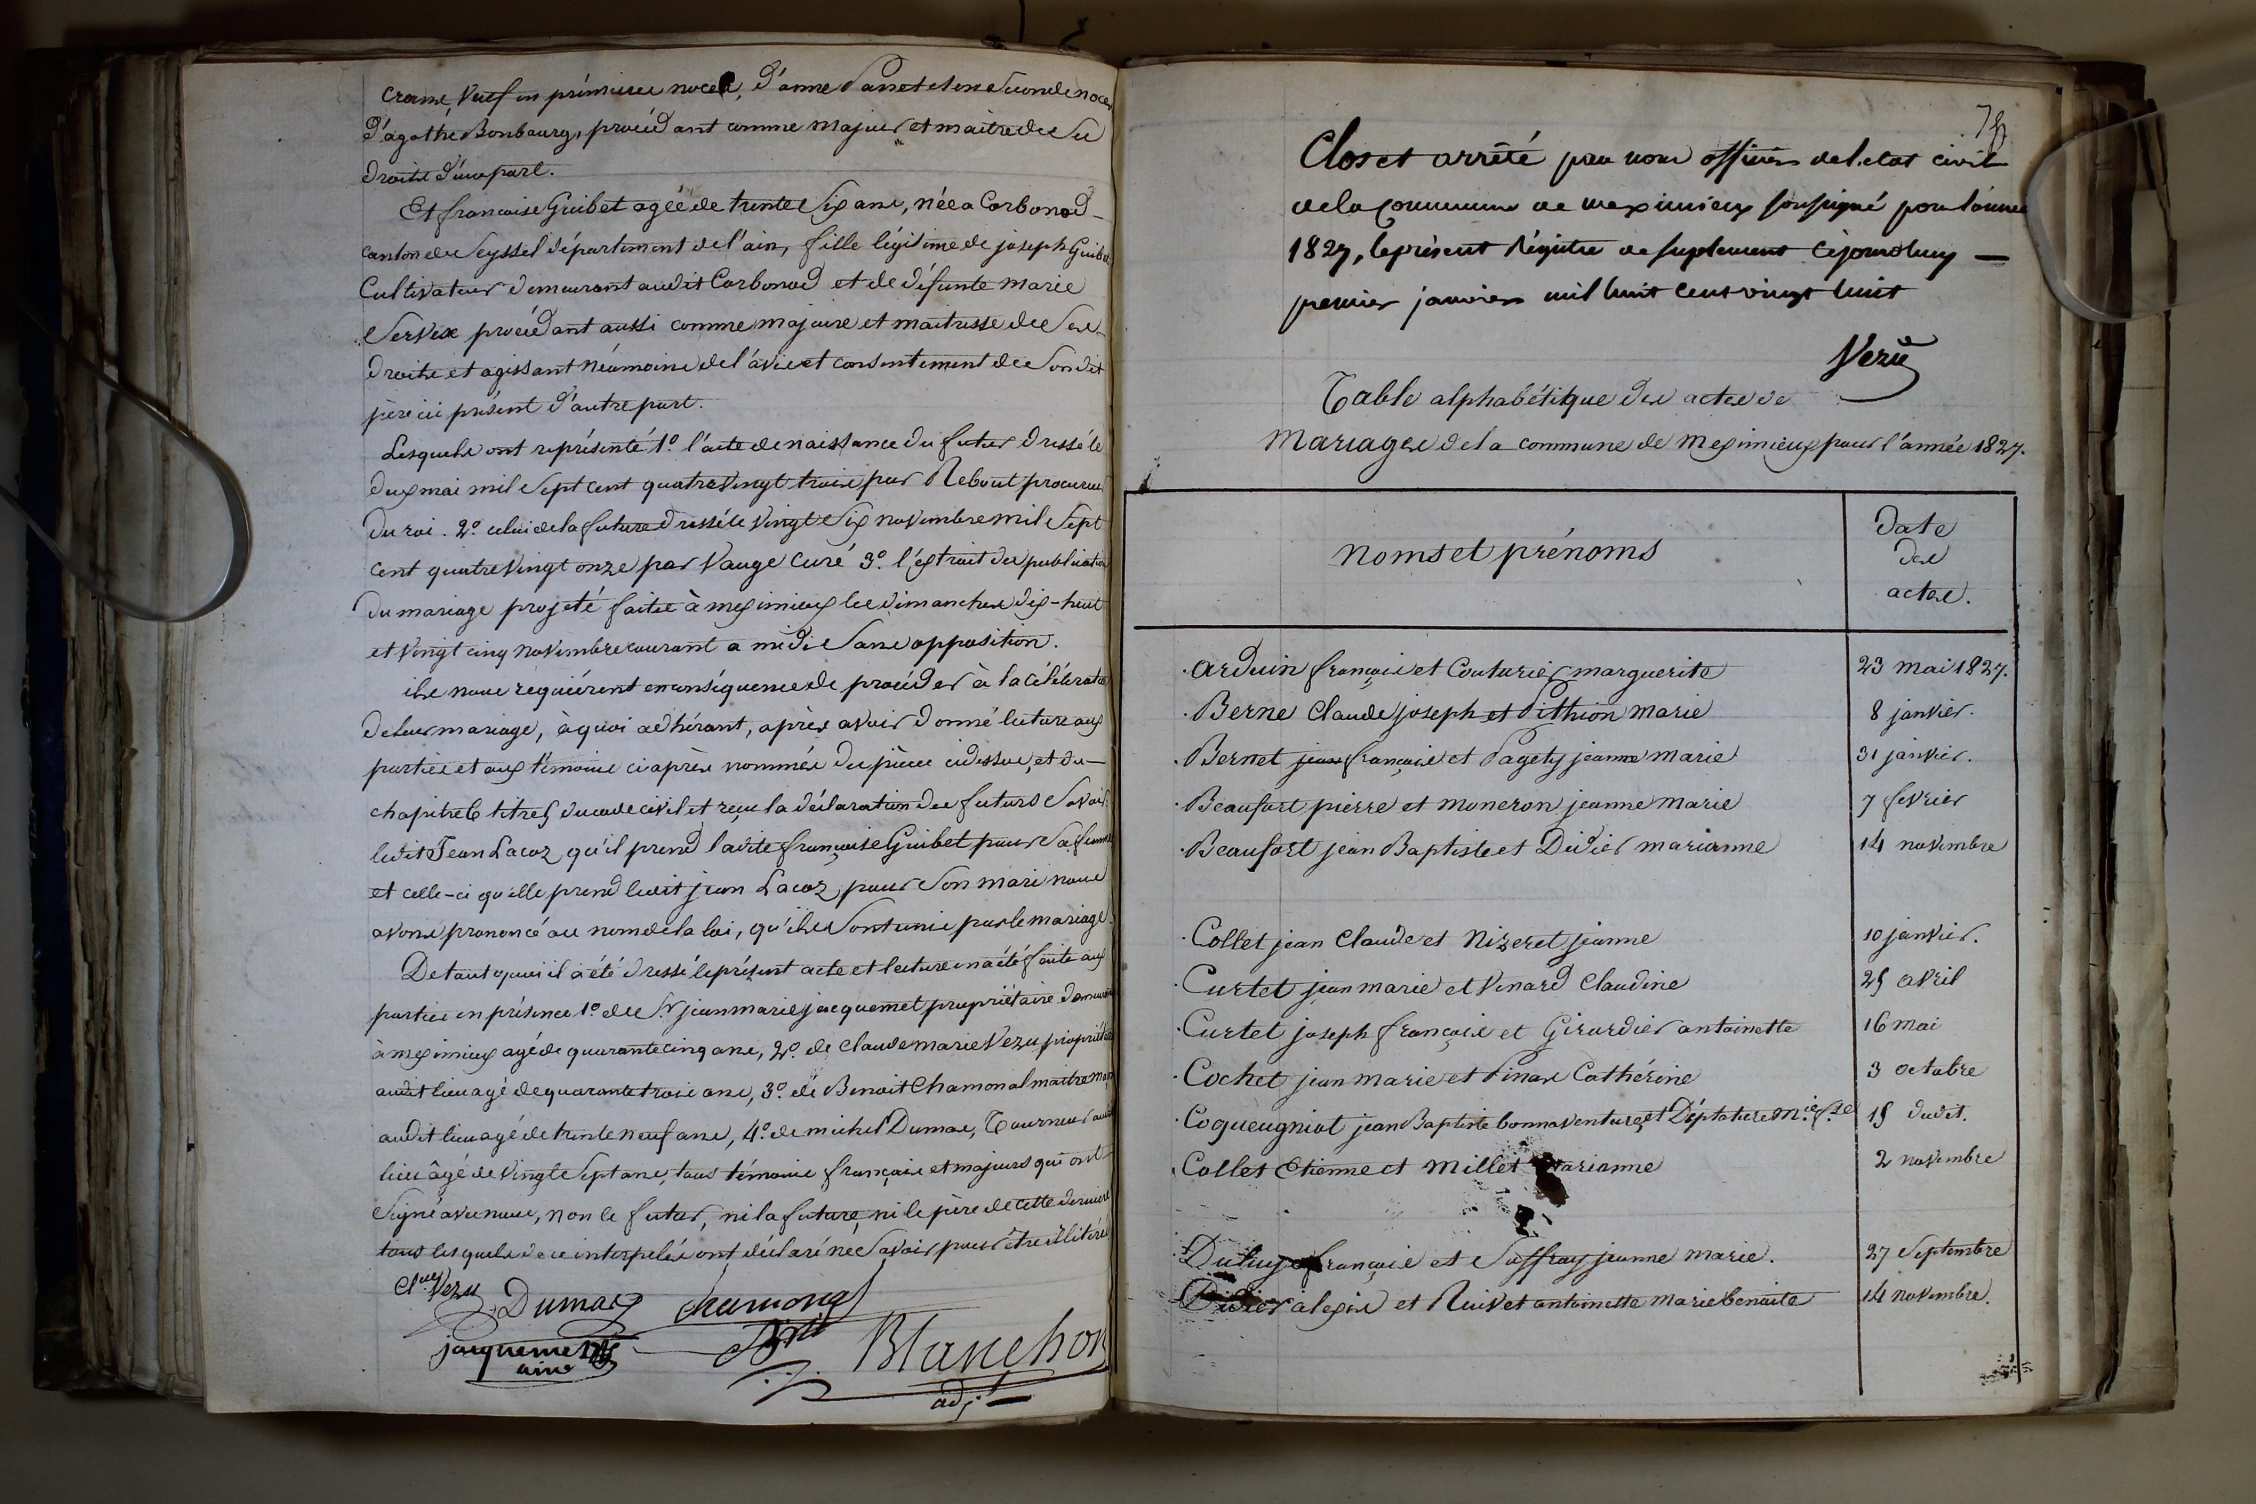 Crane, veuf en prémieres noces, d'anne Panet et en Seconde noces
d'agathe Bonbourg, procédant comme majeur et maitre de Ses
droits d'une part.
Et françoise Guibet agée de trente Six ans, née a Corbonod
canton de Seyssel département de l'ain, fille légitime de joseph Guibet
Cultivateur demeurant audit Corbonod et de défunte marie
Servex procédant aussi comme majeure et maitresse de Ses
droits et agissant néamoins de l'avis et consentement de Son dit
père ici présent d'autre part.
Lesquels ont représenté 1.º l'acte de naissance du futur dressé le
deux mai mil Sept cent quatre Vingt trois par Rebout procureur
du roi. 2.º celui de la future dressé le Vingt Six novembre mil Sept
cent quatre Vingt onze par Vauge Curé 3.º l'extrait des publications
du mariage projeté faites à meximieux les dimanches dix-huit
et Vingt cinq novembre courant a midi Sans opposition.
ils nous réquiérent en conséquence de procéder à la célébration
de leur mariage, à quoi adhérant, après avoir donné lecture aux
parties et aux témoins ci après nommés des pièces ci dessus, et du
chapitre 6 titre 5 du code civil et reçu la déclaration des futurs Savoir
ledit Jean Lacoz qu'il prend ladite françoise Guibet pour Sa femme
et celle-ci qu'elle prend ledit jean Lacoz pour Son mari nous
avons prononcé au nom de la loi, qu'ils Sont unis par le mariage.
De tout quoi il a été dressé le présent acte et lecture en a été faite aux
parties en présence 1.º de Sr. jean marie jacquemet propriétaire demeurant
à meximieux agé de quarante cinq ans, 2.º de Claude marie Vezu propriétaire
audit lieu agé de quarante trois ans, 3.º de Benoit Chamonal maitre maçon
audit lieu agé de trente neuf ans, 4.º de michel Dumas, Tourneur audit
lieu âgé de Vingt Sept ans, tous témoins français et majeurs qui ont
Signé avec nous, non le futur, ni la future, ni le père de cette dernière
tous lesquels de ce interpelés ont déclaré ne Savoir pour être illitérés
Cl. Vezu
Dumas Chamonal
jacquemet
ainé
Blanchon
adj.
Clos et arrêté par nous officier de l'etat civil
de la Commune de meximieux soussigné pour l'année
1827, le présent régistre de suplement cejourdhuy
premier janvier mil huit cent vingt huit
Vezu
Table alphabétique des actes de
Mariages de la commune de Meximieux pour l'année 1827.
noms et prénoms
Date
des
actes.
Arduin françois et Couturier marguerite 23 mai 1827.
Berne Claude joseph et Pithion Marie 8 janvier.
Bernet jean françois et Pagety jeanne Marie 31 janvier.
Beaufort pierre et moneron jeanne marie 7 fevrier
Beaufort jean Baptiste et Didier marianne 14 novembre
Collet jean Claude et Nizeret jeanne 10 janvier.
Curtet jean marie et Vinard Claudine 25 avril
Curtet joseph françois et Girardier antoinette 16 mai
Cochet jean marie et Pinard Cathérine 3 octobre
Coqueugniot jean Baptiste bonnaventure et Déptature m.ie f.se 15 dudit.
Collet Etienne et Millet Marianne 2 novembre
françois et Suffray jeanne Marie. 27 Septembre
Didier alexis et Ruivet antoinette Marie benoite 14 novembre.